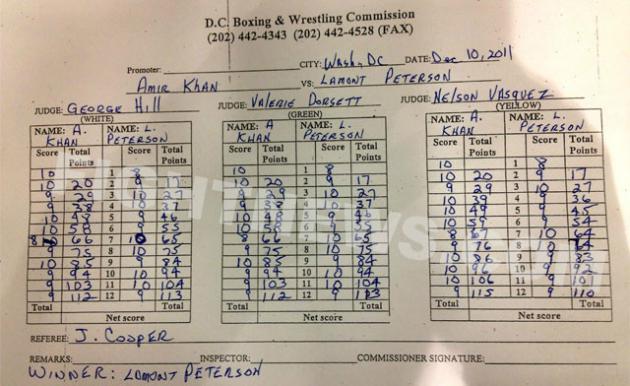 D.C. Boxing & Wrestling Commission
(202) 442-4343 (202) 442-4528 (FAX)
Promoter: CITY: Wash, DC DATE: Dec 10, 2011
AMIR KHAN VS: LAMONT PETERSON
JUDGE: GEORGE Hill JUDGE: VALERIE DORSETT JUDGE: NELSON VASQUEZ
(WHITE) (GREEN) (YELLOW)
NAME: A. KHAN NAME: L. PETERSON NAME: A KHAN NAME: L. PETERSON NAME: A. KHAN NAME: L. PETERSON
Score Total Points Score Total Points Score Total Points Score Total Points Score Total Points Score Total Points
10 1 8 10 1 8 10 1 8
10 20 2 9 17 10 20 2 9 17 10 20 2 9 17
9 29 3 10 27 9 29 3 10 27 9 29 3 10 27
9 38 4 10 37 9 38 4 10 37 10 39 4 9 36
10 48 5 9 46 10 48 5 9 46 10 49 5 9 45
10 58 6 9 55 10 58 6 9 55 10 59 6 9 54
8 66 7 10 65 8 66 7 10 65 8 67 7 10 64
9 75 8 10 75 9 75 8 10 75 9 76 8 10 74
10 85 9 9 84 10 85 9 9 84 10 86 9 9 83
9 94 10 10 94 9 94 10 10 94 10 96 10 9 92
9 103 11 10 104 9 103 11 10 104 10 106 11 9 101
9 112 12 9 113 9 112 12 9 113 9 115 12 9 110
Total Total Total Total Total Total
Net score Net score Net score
REFEREE: J. COOPER
REMARKS: INSPECTOR: COMMISSIONER SIGNATURE:
WINNER: LAMONT PETERSON